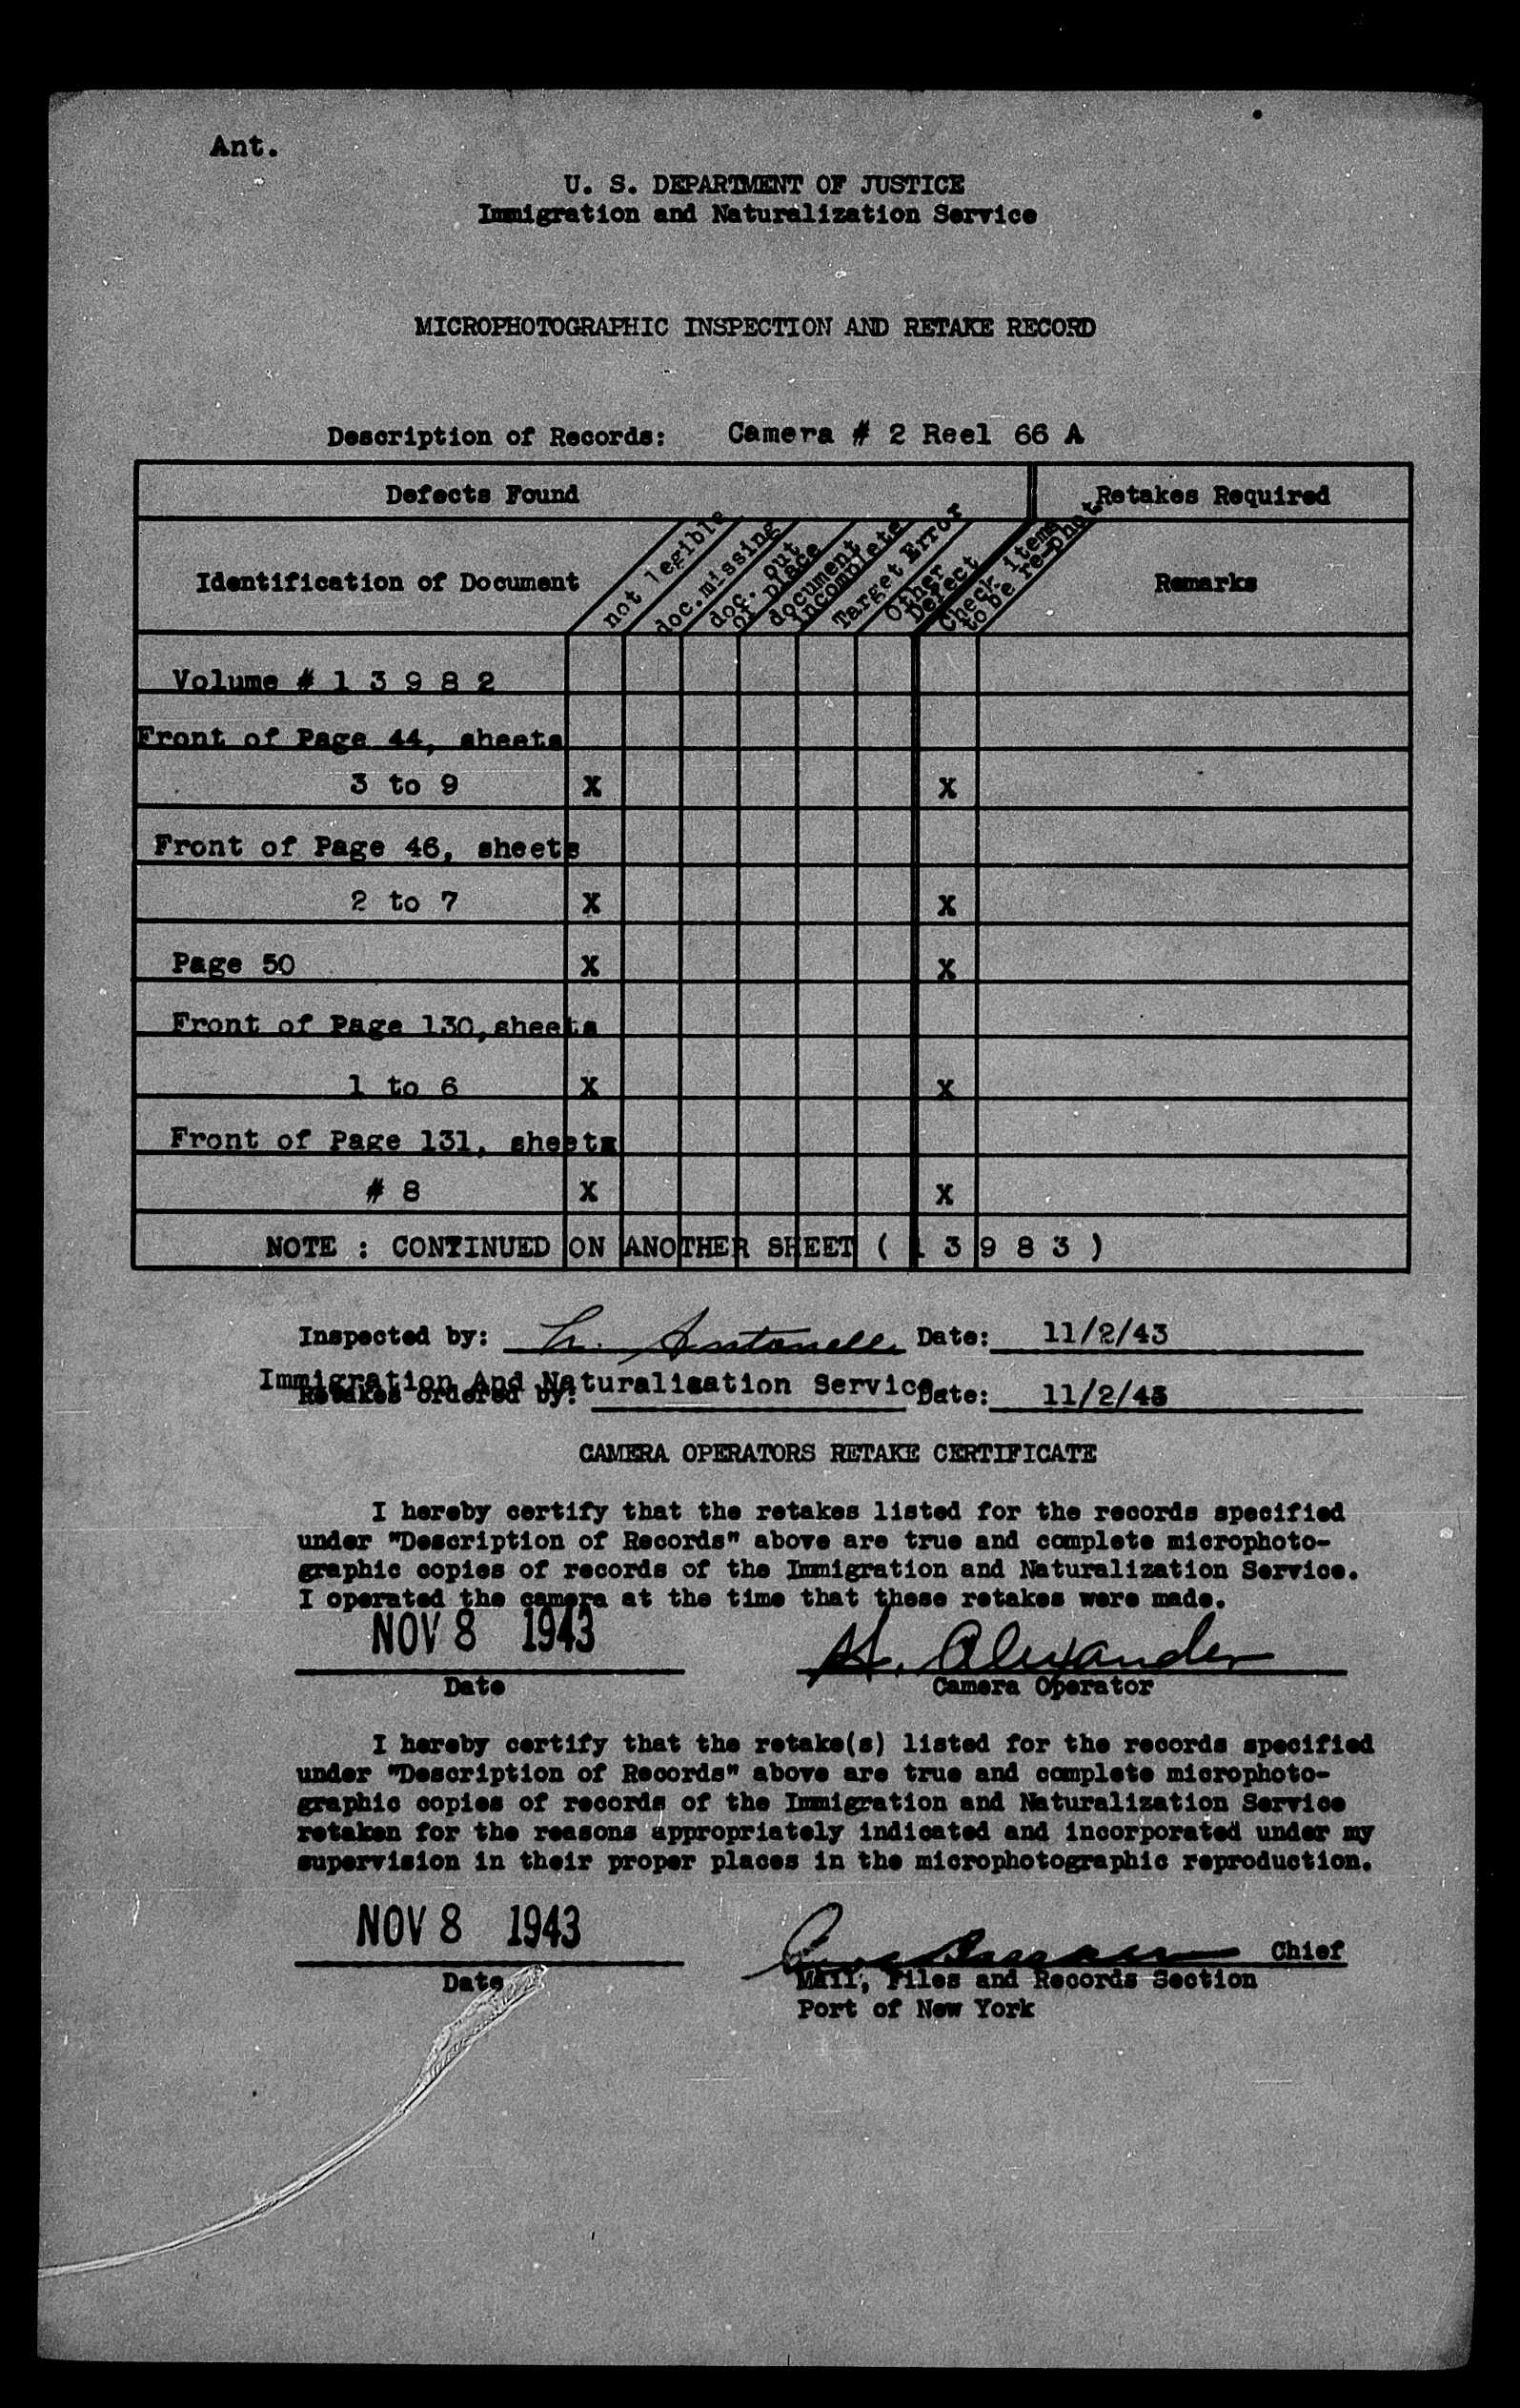 Ant.
U. S. DEPARTMENT OF JUSTICE
Immigration and Naturalization Service
MICROPHOTOGRAPHIC INSPECTION AND RETAKE RECORD
Description of Records: Camera # 2 Reel 66 A
Defects Found
Retakes Required
Identification of Document
not legible
doc.missing
doc. out
of place
document
incomplete
Target Error
Other
Defect
Check items
to be re-phot.
Remarks
Volume # 1 3 9 8 2
Front of Page 44, sheets
3 to 9 X X
Front of Page 46, sheets
2 to 7 X X
Page 50 X X
Front of Page 130,sheets
1 to 6 X X
Front of Page 131, sheets
# 8 X X
NOTE : CONTINUED ON ANOTHER SHEET ( 1 3 9 8 3 )
Inspected by: Date: 11/2/43
Immigration And Naturalization Service
Retakes ordered by: Date: 11/2/43
CAMERA OPERATORS RETAKE CERTIFICATE
I hereby certify that the retakes listed for the records specified
under "Description of Records" above are true and complete microphoto-
graphic copies of records of the Immigration and Naturalization Service.
I operated the camera at the time that these retakes were made.
NOV 8 1943 H. Alexander
Date Camera Operator
I hereby certify that the retake(s) listed for the records specified
under "Description of Records" above are true and complete microphoto-
graphic copies of records of the Immigration and Naturalization Service
retaken for the reasons appropriately indicated and incorporated under my
supervision in their proper places in the microphotographic reproduction.
NOV 8 1943 Chief
Date Mail, Files and Records Section
Port of New York